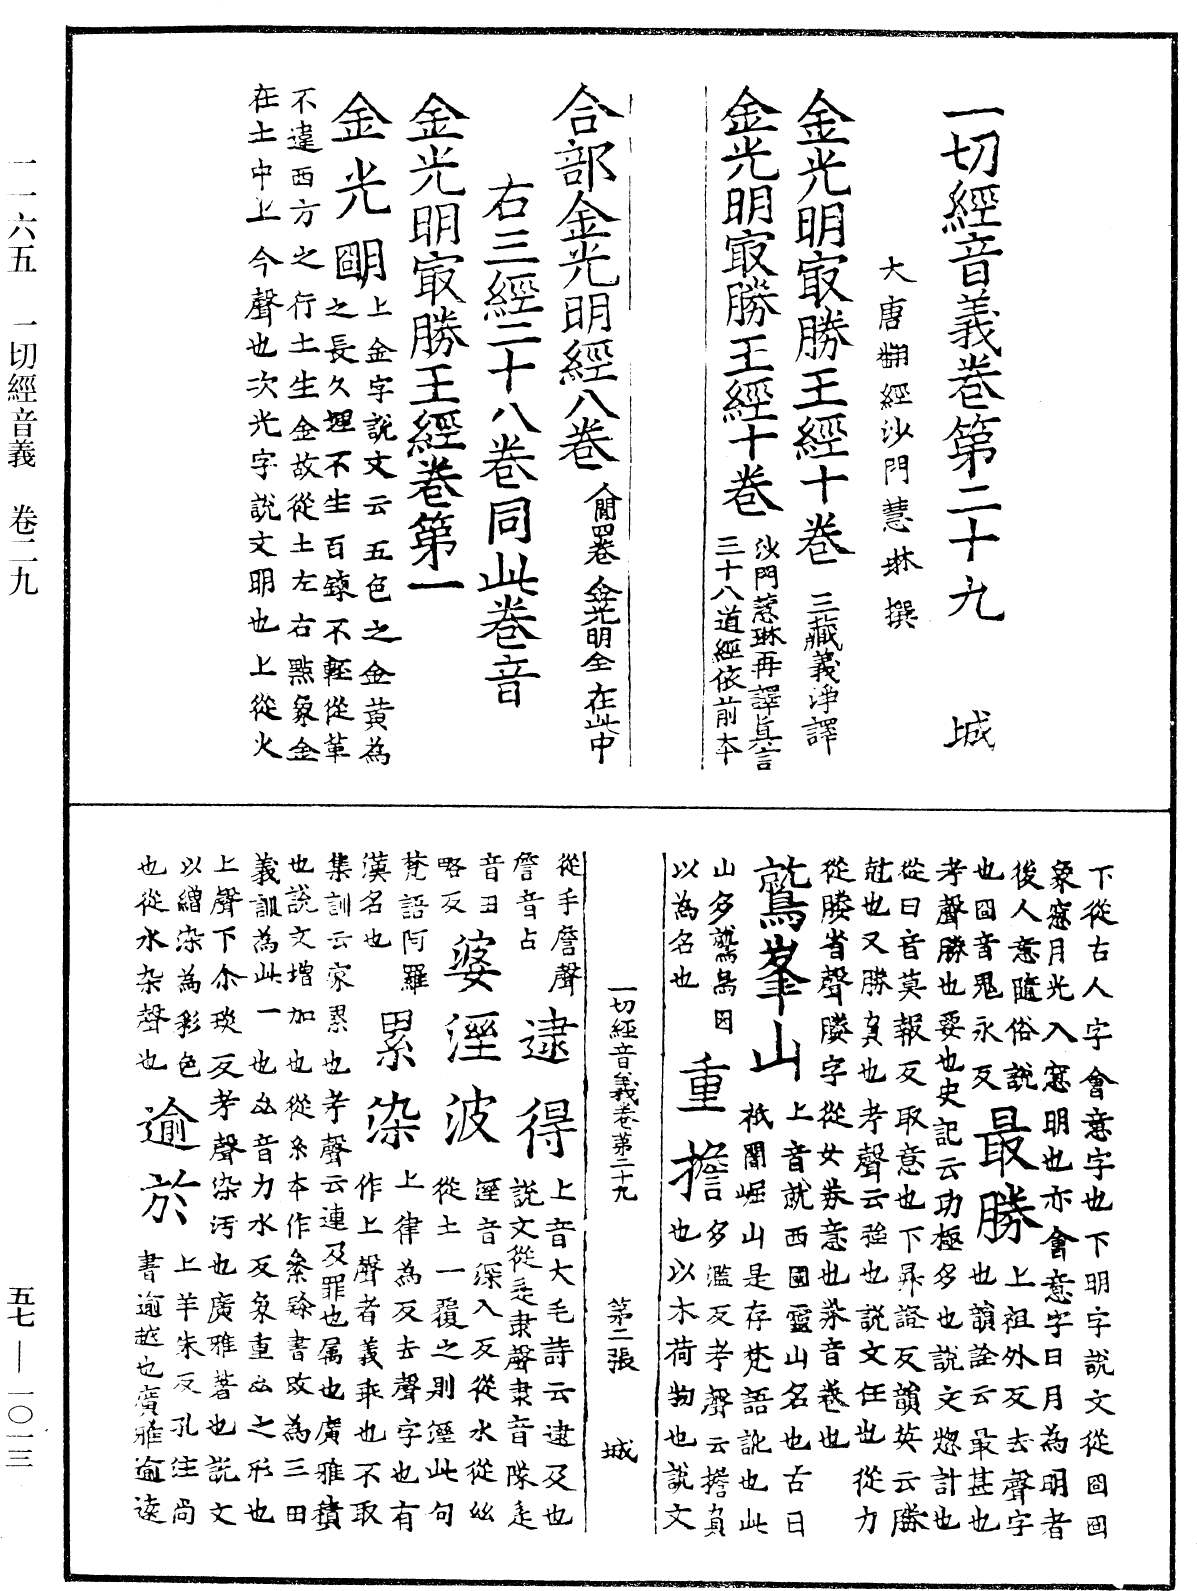 一切經音義卷第二十九　　城
大唐翻經沙門慧琳撰
金光明㝡勝王經十卷　三藏義淨譯
金光明㝡勝王經十卷　沙門慧琳再譯真言
三十八道經依前本
合部金光明經八卷
金光明全在此中
右三經二十八卷同此卷音
金光明㝡勝王經卷第一
金光朙　上金字說文云五色之金黃為
之長久埋不生百鍊不輕從革
不違西方之行土生金故從土左右點象金
在土中上今聲也次光字說文明也上從火
下從古人字會意字也下明字說文從囧囧
象窓月光入窓明也亦會意字日月為明者
後人意隨俗說
也囧音鬼永反
最勝　上祖外反去聲字
也韻詮云最甚也
考聲勝也要也史記云功極多也說文惣計也
從曰音莫報反取意也下昇證反韻英云勝
尅也又勝負也考聲云強也說文任也從力
從朕省聲
鷲峯山　上音就西國靈山名也古曰
祇闍崛山是存梵語訛也此
山多鷲鳥因
以為名也
重擔　多濫反考聲云擔負
也以木荷物也說文
一切經音義卷第二十九　第二張　城
從手詹聲
詹音占
逮得　上音大毛詩云逮及也
說文從辵隶聲隶音隊辵
音丑
略反
婆湼波　湼音深入反從水從絲
從土一覆之則湼此句
梵語阿羅
漢名也
累染　上律為反去聲字也有
作上聲者義乖也不取
集訓云家累也考聲云連及罪也属也廣雅積
也說文增加也從糸本作絫隸書改為三田
義訓為此一也厽音力水反象重厽之形也
上聲下尒琰反考聲染污也廣雅著也說文
以繒染為彩色
也從水杂聲也
逾於　上羊朱反孔注尚
書逾越也廣雅逾遠
一一六五　一切經音義　卷二九
五七—一〇一三